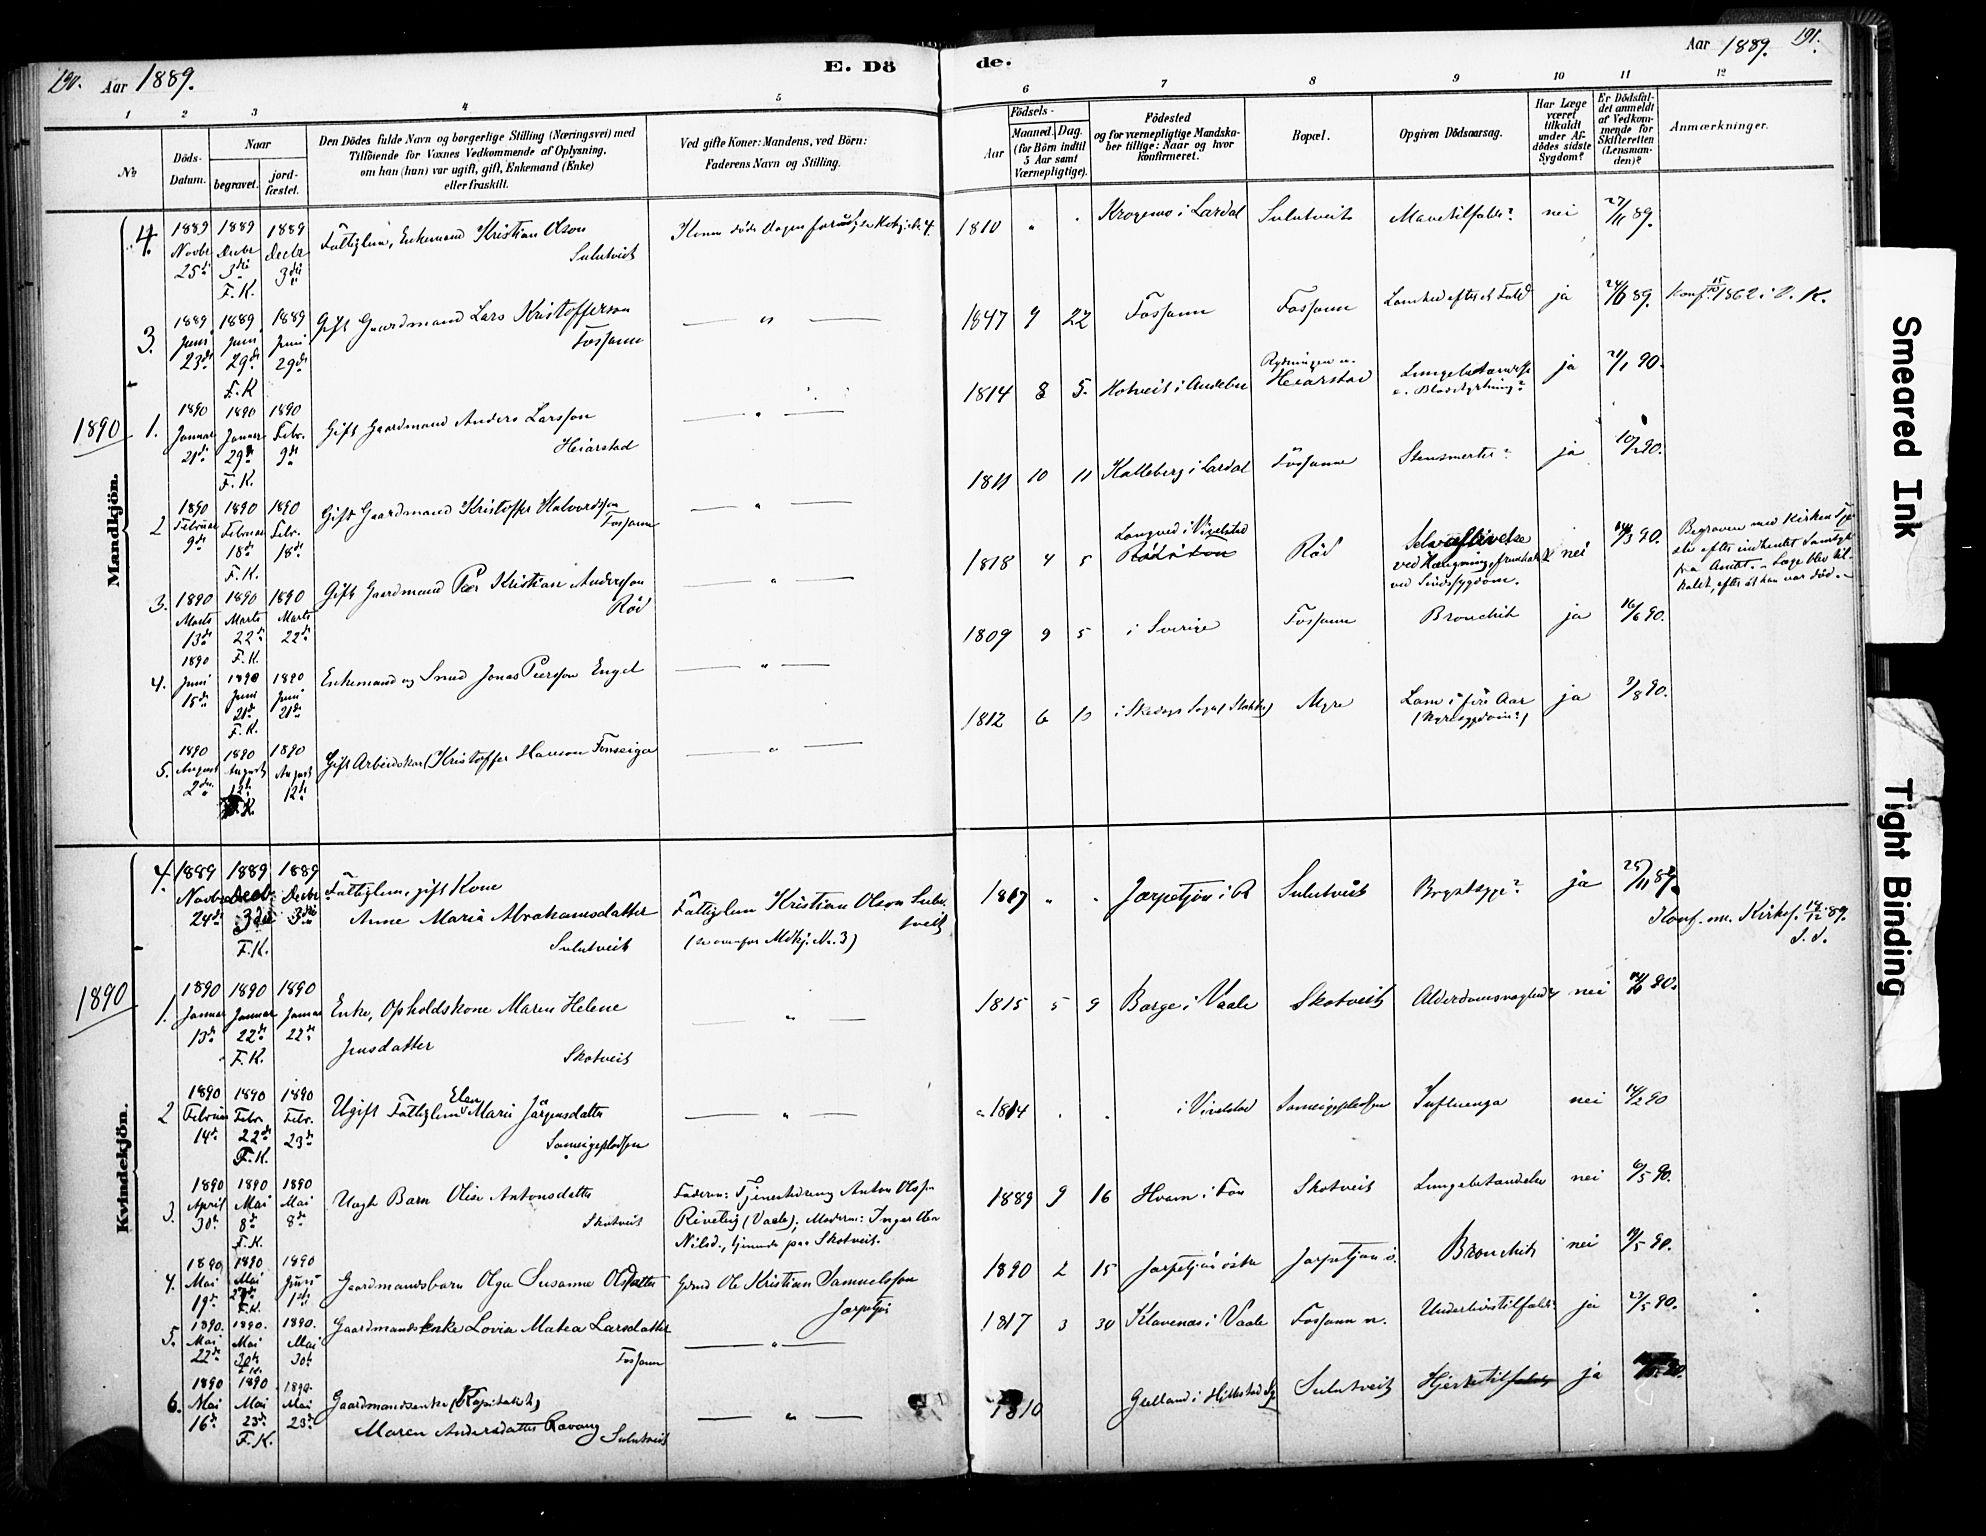 190. Aar 1889.
E. Dö
de.
Aar 1889. 191.
1 2 3 4 5
6 7 8 9 10 11 12
No
Döds-Datum.
Naar
begravet.
jord-fæstet.
Den Dödes fulde Navn og borgerlige Stilling (Næringsvei) med
Tilföiende for Voxnes Vedkommende af Oplysning,
om han (hun) var ugift, gift, Enkemand (Enke)
eller fraskilt.
Ved gifte Koner: Mandens, ved Börn:
Faderens Navn og Stilling.
Födsels-
Aar
Maaned. Dag.
(for Börn indtil
5 Aar samt
Værnepligtige).
Födested
og for værnepligtige Mandska-
ber tillige: Naar og hvor
konfirmeret.
Bopæl.
Opgiven Dödsaarsag.
Har Læge
været
tilkaldt
under Af-
dödes sidste
Sygdom?
Er Dödsfal-
det anmeldt
af Vedkom-
mende for
Skifteretten
(Lensman-
den)?
Anmærkninger.
Mandkjön.
4. 1889 Novbr 25de 1889 Decbr 3die F.K. 1889 Decbr 3die Fattiglem, Enkemand Kristian Olson
Sulutveit
1810 " . Krogemo i Lardal Sulutveit Mavetilfælde? nei 27/11 89.
3. 1889 Juni 23de 1889 Juni 29de F.K. 1889 Juni 29de Gift Gaardmand Lars Kristofferson
Fossann
" 1847 9 22 Fossann Fossann Lamhed efter et Fald ja 24/6 89. Konf. 1862 i V. K.
1890
1. 1890 Januar 21de 1890 Januar 29de F.K. 1890 Febr. 9de Gift Gaardmand Anders Larsson
Heiarstad
" 1814 8 5. Hotveit i Andebu Heiarstad ja 21/1 90.
2 1890 Februar 9de 1890 Februar 18de F.K. 1890 Febr. 18de Gift Gaardmand Kristoffer Halvordsson
Fossann
" 1811 10 11 Kalleberg i Lardal Fossann Stensmerter? ja 10/2 90.
3. 1890 Marts 13de 1890 Marts 22de F.K. 1890 Marts 22de Gift Gaardmand Peer Kristian Andersson
Röd
" 1818 4 5 Langved i Vivelstad Röd Selvaflivelse
ved Hængning, fremkaldt
ved Sindssygdom. nei 14/3 90. Begraven med Kirkens Tje-
ste efter indhentet Samtyk
fra Amtet. - Læge blev til-
kaldt, efter at han var död. -
4. 1890 Juni 15de 1890 Juni 21de F.K. 1890 Juni 21de Enkemand og Smed Jonas Peersson Engel
" 1809 9 5 i Sverige Fossann Bronchit ja 16/6 90.
5. 1890 August 2den 1890 August 12te F.K. 1890 August 12te Gift Arbeidskar Kristoffer Hanson Fonseiga
" 1812 6 Myre Lam i fire Aar
(Nyresygdom?) ja 2/8 90.
Kvindekjön.
4. 1889 Novbr 24de 1889 Decbr 3die F.K. 1889 Decbr 3die Fattiglem, gift Kone
Anne Maria Abrahamsdatter
Sulutveit
Fattiglem Kristian Olson Sulu-
tveit
(se ovenfor Mdkj. Nr. 3)
1817 " . Jarpetjön i R Sulutveit Brystsyge? ja 25/11 89.
Konf. m. Kirkef. 14/12 89.
1890
1. 1890 Januar 13de 1890 Januar 22de F.K. 1890 Januar 22de Enke, Opholdskone Maren Helene
Jensdatter
Skotveit
" 1815 5 9 Borge i Vaale Skotveit Alderdomssvaghed nei 90.
2 1890 Februar 14de 1890 Febr. 22de F.K. 1890 Febr. 23de Ugift Fattiglem Elen Marie Jörgensdatter
" 1814 . . i Vivelstad Influenza nei 14/2 90
3. 1890 April 30te 1890 Mai 8de F.K. 1890 Mai 8de Uægte Barn Olise Antonsdatter
Skotveit
Faderen: Tjenestedreng Anton Olsen
(Vaale); Moderen: Inger
Nilsd., tjenende paa Skotveit.
1889 9 16 Hvam i Fon Skotveit Lungebetændelse nei 6/5 90.
4. 1890 Mai 19de 1890 Mai F.K. 1890 Juni 1ste Gaardmandsbarn Olga Susanne Olsdatter
Gdmd Ole Kristian Samuelsson
Jarpetjön
1890 2 15 Jarpetjön östre Jarpetjön ö. Bronchit nei 19/5 90.
5. 1890. Mai 22de 1890. Mai 30te F.K. 1890. Mai 30te Gaardmandsenke Lovise Matea Larsdatter
Fossann
" 1817 3 30 Klavenæs i Vaale Fossann n. Underlivstilfælde ja 27/5 90.
6. 1890 Mai 16de 1890 Mai 23de F.K. 1890 Mai 23de Gaardmandsenke (Kapitalist)
Maren Andersdatter Ravang Sulutveit
" 1810 Gulland i Hillestad Sg Sulutveit Hjertetilfælde ja 90.
Smeared Ink
Tight Binding